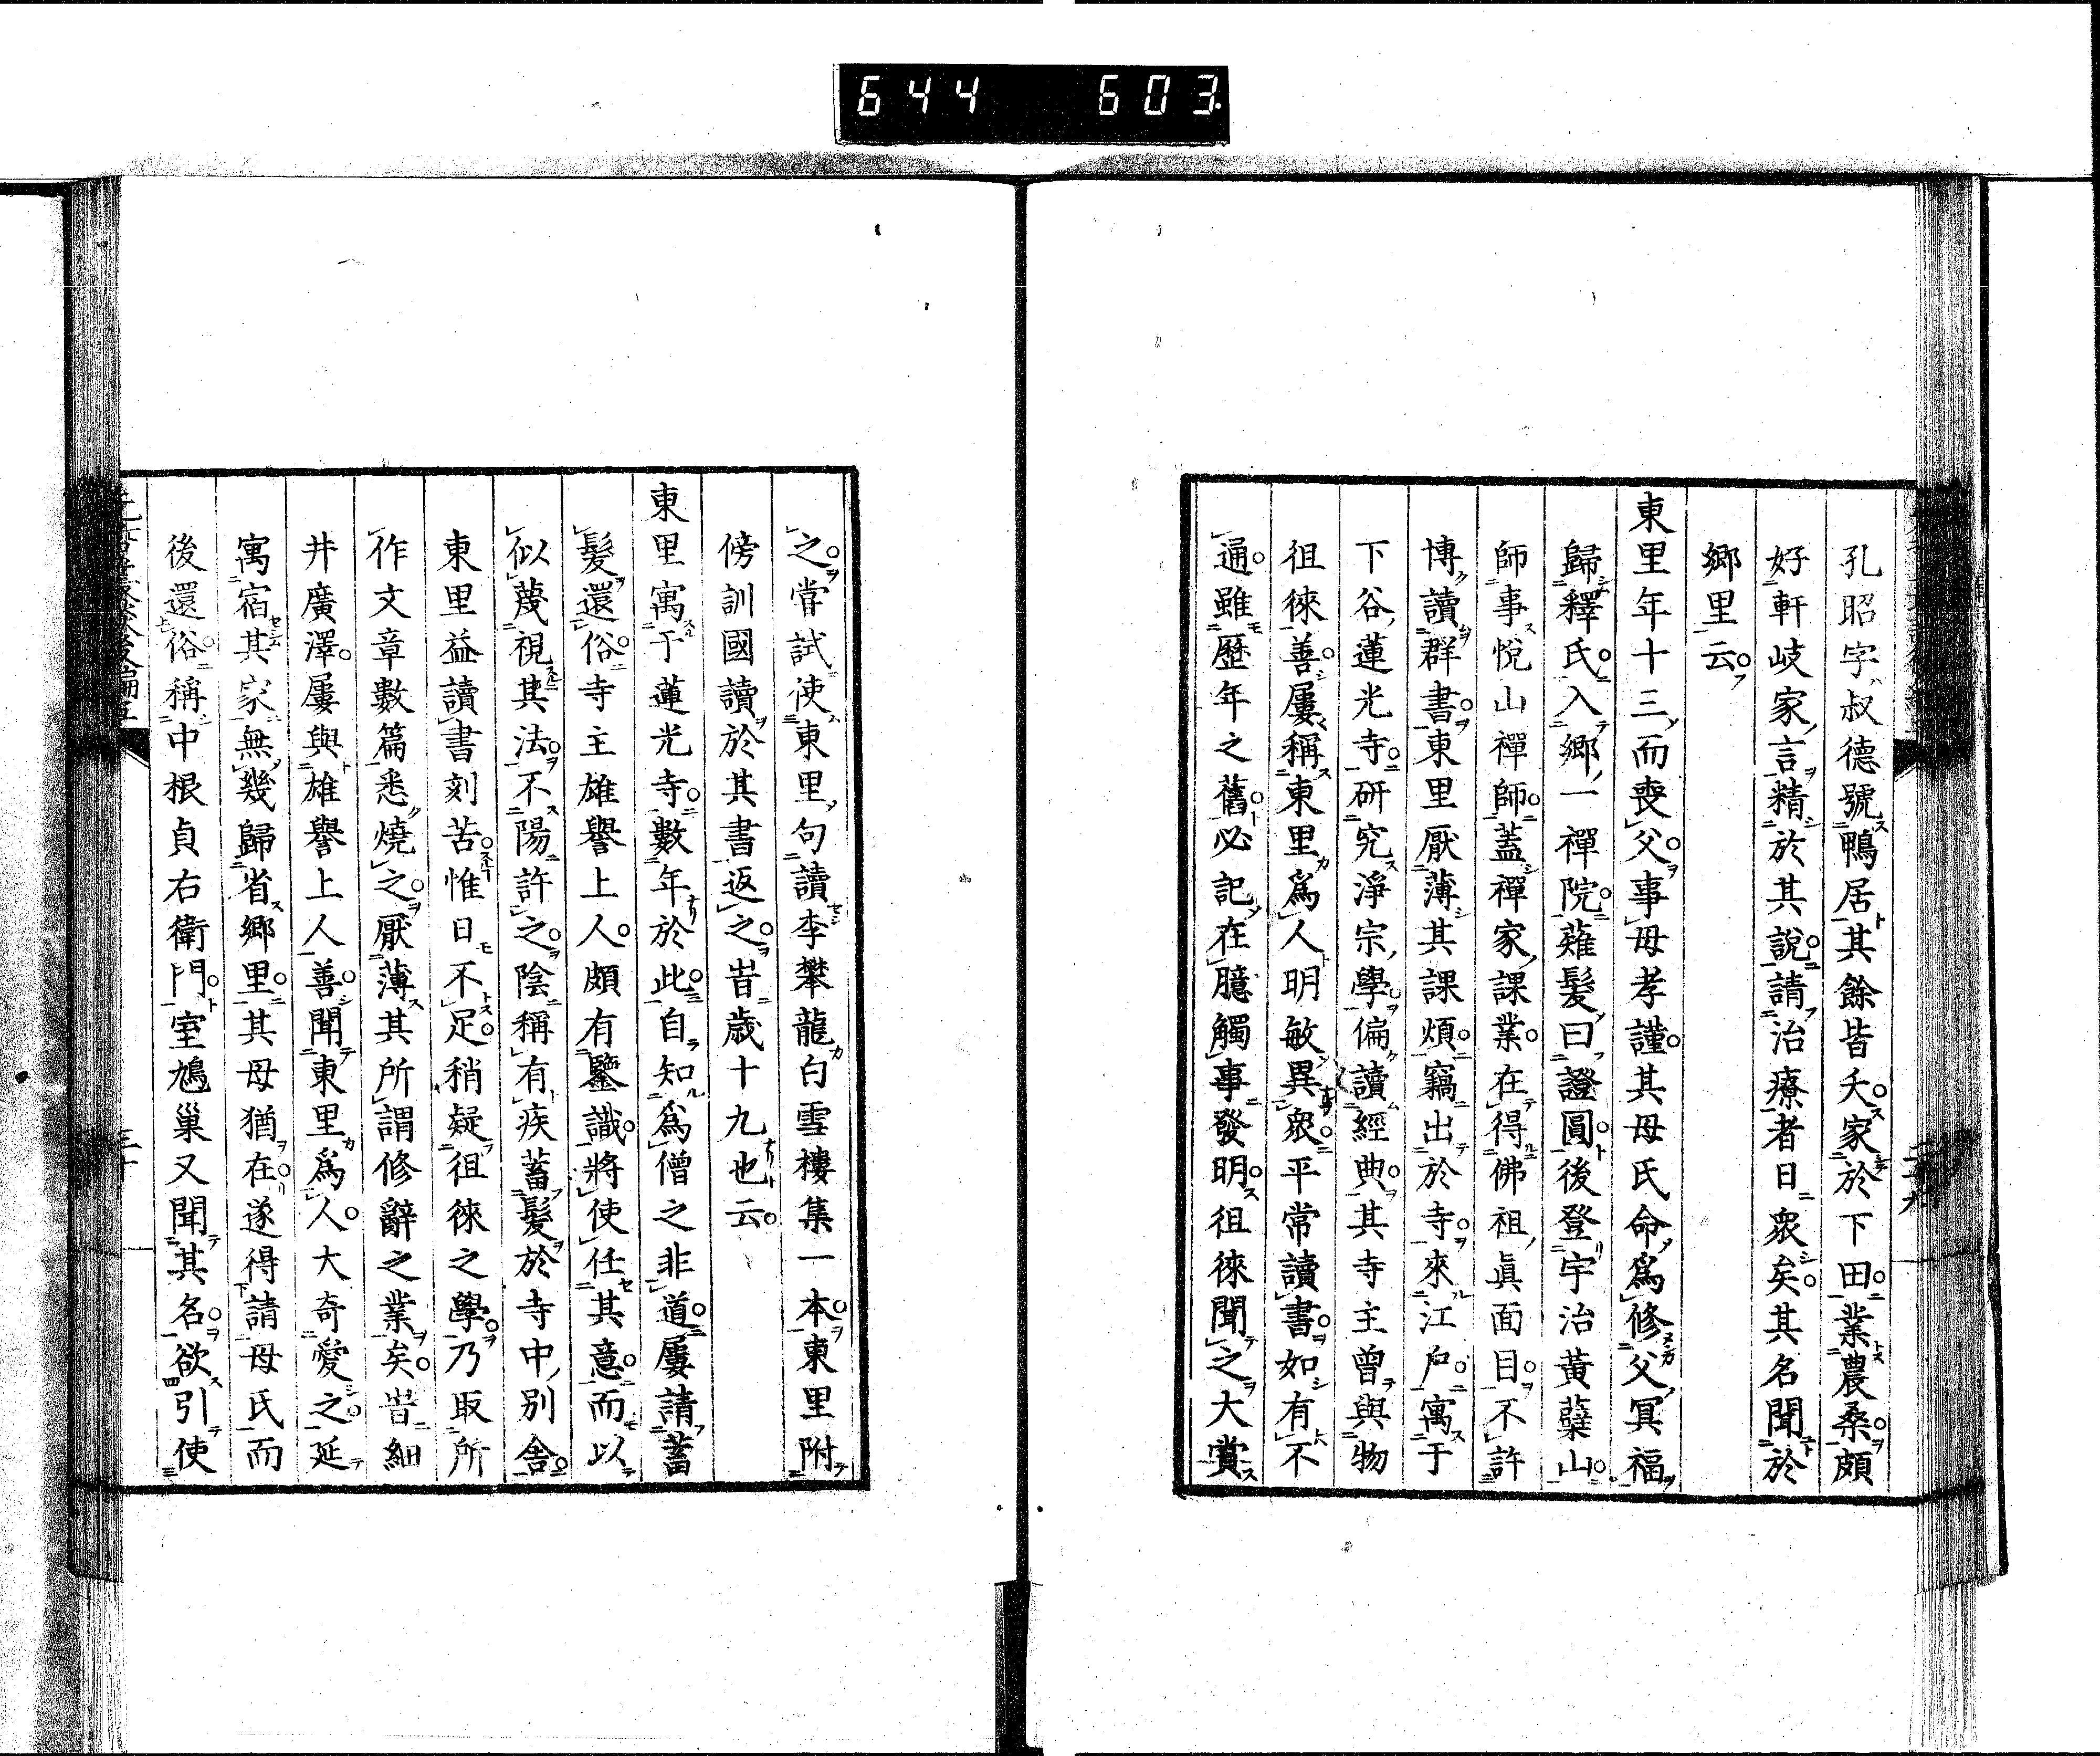 644 603
孔昭字叔德號鴨居其餘皆夭家於下田業農桑頗
好軒岐家言精於其說請治療者日衆矣其名聞於
鄉里云
東里年十三而喪父事母孝謹其母氏命爲修父冥福
歸釋氏入鄉一禪院薙髮曰證圓後登宇治黃蘗山
師事悅山禪師蓋禪家課業在得佛祖眞面目不許
博讀群書東里厭薄其課煩竊出於寺來江戶寓于
下谷蓮光寺研究淨宗學偏讀經典其寺主曾與物
徂徠善屢稱東里爲人明敏異衆平常讀書如有不
通雖歷年之舊必記在臆觸事發明徂徠聞之大賞
之嘗試使東里句讀李攀龍白雪樓集一本東里附
傍訓國讀於其書返之旹歲十九也云
東里寓于蓮光寺數年於此自知爲僧之非道屢請蓄
髮還俗寺主雄譽上人頗有鑒識將使任其意而以
似蔑視其法不陽許之陰稱有疾蓄髮於寺中別舍
東里益讀書刻苦惟日不足稍疑徂徠之學乃取所
作文章數篇悉燒之厭薄其所謂修辭之業矣旹細
井廣澤屢與雄譽上人善聞東里爲人大奇愛之延
寓宿其家無幾歸省鄉里其母猶在遂得請母氏而
後還俗稱中根貞右衛門室鳩巢又聞其名欲引使
三十